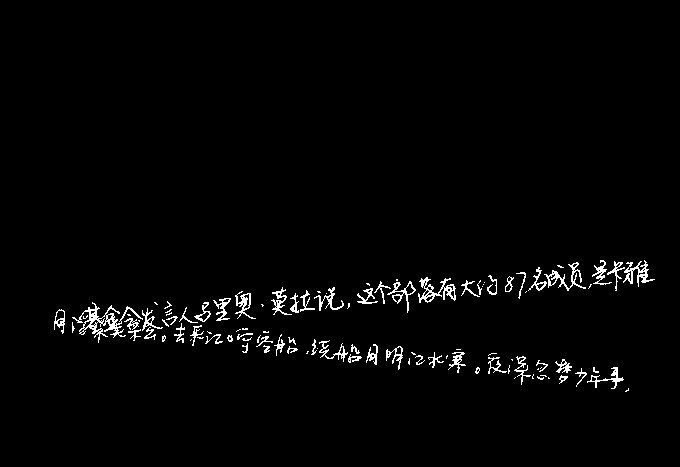 发言人马里奥·莫拉说,这个部落有大约87名成员,是卡雅
。去来江口守空船,绕船月明江水寒。夜深忽梦少年事,